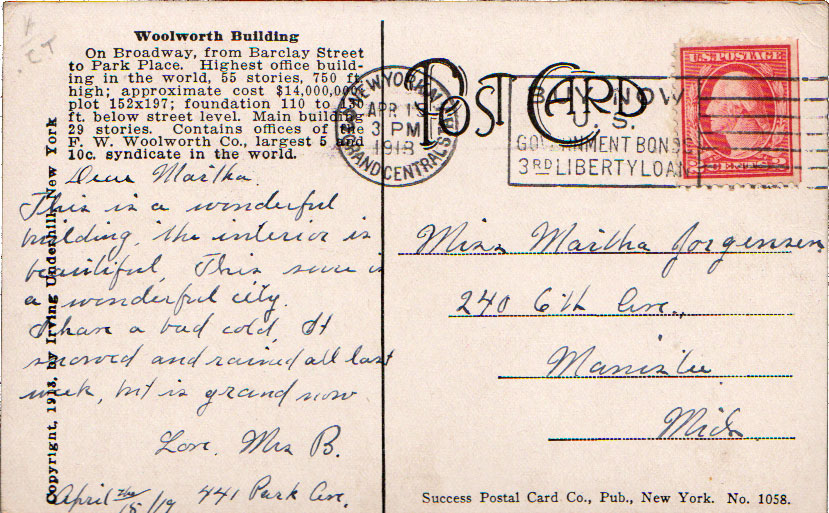 Woolworth Building
On Broadway, from Barclay Street
to Park Place. Highest office build-
ing in the world, 55 stories, 750 ft.
high; approximate cost $14,000,000;
plot 152x197; foundation 110 to 130
ft. below street level. Main building
29 stories. Contains offices of the
F. W. Woolworth Co., largest 5 and
10c. syndicate in the world.
Dear Martha.
This is a wonderful
building, the interior is
beautiful, This sure is
a wonderful city.
I have a bad cold, It
snowed and rained all last
week, but is grand now.
Love. Mrs B.
April 441 Park Ave.
Copyright, 1913, by Irving Underhill, New York
POST CARD
NEW YORK, N.Y.
APR
3 PM
1918
GRAND CENTRAL STA.
BUY NOW
U. S.
GOVERNMENT BONDS
3RD LIBERTY LOAN
U.S. POSTAGE
2 CENTS 2
Miss Martha Jorgensen
240 6th Ave.,
Manistee
Mich.
Success Postal Card Co., Pub., New York. No. 1058.